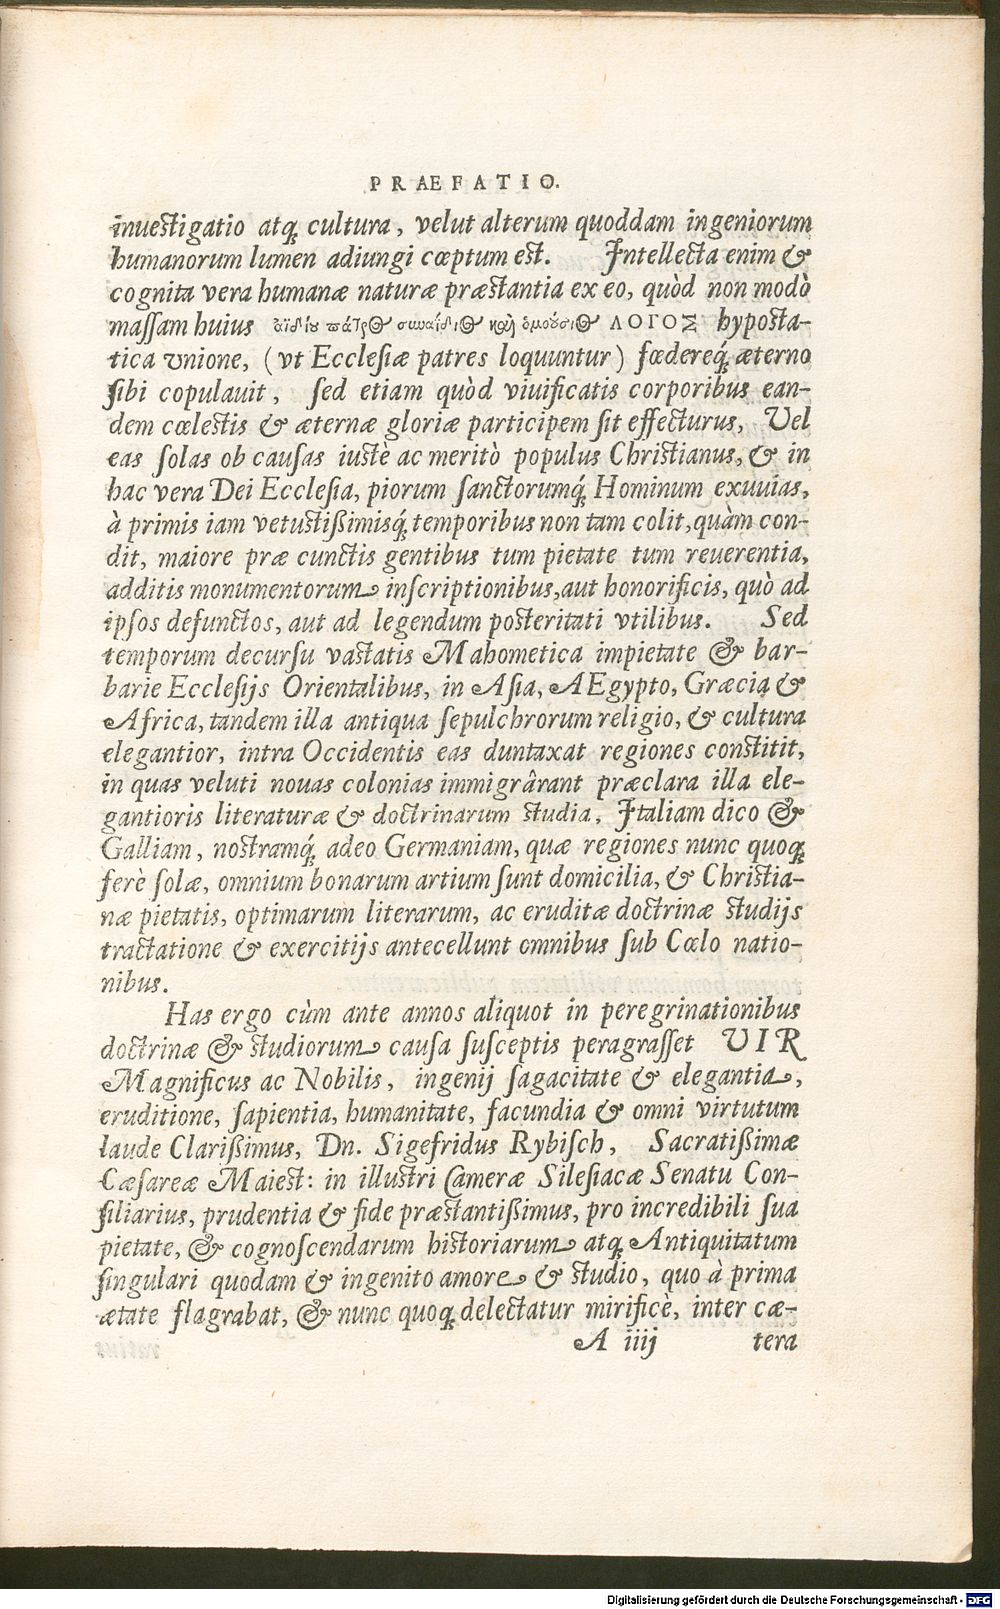 PRAEFATIO.
inuestigatio atq́; cultura, velut alterum quoddam ingeniorum
humanorum lumen adiungi cœptum est. Intellecta enim &
cognita vera humanæ naturæ præstantia ex eo, quòd non modò
maſſam huius ἀϊδίου πάτρος συναίδιος καὶ ὁμούσιος ΛΟΓΟΣ hyposta-
tica vnione, (vt Eccleſiæ patres loquuntur) fœdereq́; æterno
ſibi copulauit, ſed etiam quòd viuificatis corporibus ean-
dem cœlestis & æternæ gloriæ participem ſit effecturus, Vel
eas ſolas ob cauſas iustè ac meritò populus Christianus, & in
hac vera Dei Eccleſia, piorum ſanctorumq́; Hominum exuuias,
à primis iam vetustißimisq́; temporibus non tam colit, quàm con-
dit, maiore præ cunctis gentibus tum pietate tum reuerentia,
additis monumentorum inſcriptionibus, aut honorificis, quò ad
ipſos defunctos, aut ad legendum posteritati vtilibus. Sed
temporum decurſu vastatis Mahometica impietate & bar-
barie Eccleſijs Orientalibus, in Aſia, AEgypto, Græcia &
Africa, tandem illa antiqua ſepulchrorum religio, & cultura
elegantior, intra Occidentis eas duntaxat regiones constitit,
in quas veluti nouas colonias immigrârant præclara illa ele-
gantioris literaturæ & doctrinarum studia, Italiam dico &
Galliam, nostramq́; adeo Germaniam, quæ regiones nunc quoq;
ferè ſolæ, omnium bonarum artium ſunt domicilia, & Christia-
næ pietatis, optimarum literarum, ac eruditæ doctrinæ studijs
tractatione & exercitijs antecellunt omnibus ſub Cœlo natio-
nibus.
Has ergo cùm ante annos aliquot in peregrinationibus
doctrinæ & studiorum cauſa ſuſceptis peragraſſet VIR
Magnificus ac Nobilis, ingenij ſagacitate & elegantia,
eruditione, ſapientia, humanitate, facundia & omni virtutum
laude Clarißimus, Dn. Sigefridus Rybiſch, Sacratißimæ
Cæſareæ Maiest: in illustri Cameræ Sileſiacæ Senatu Con-
ſiliarius, prudentia & fide præstantißimus, pro incredibili ſua
pietate, & cognoſcendarum historiarum atq; Antiquitatum
ſingulari quodam & ingenito amore & studio, quo à prima
ætate flagrabat, & nunc quoq; delectatur mirificè, inter cæ-
A iiij tera
Digitalisierung gefördert durch die Deutsche Forschungsgemeinschaft - DFG